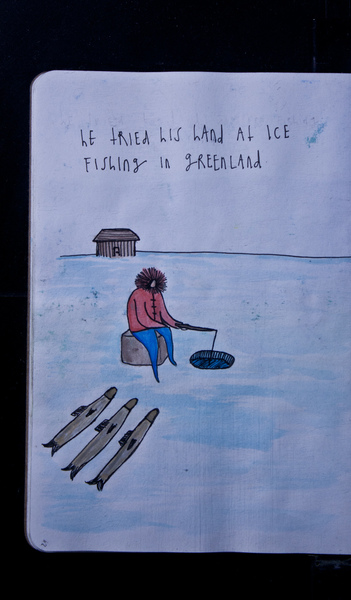 hE tRiEd hiS hAnd At iCE
FiShing in gREEnLAnd